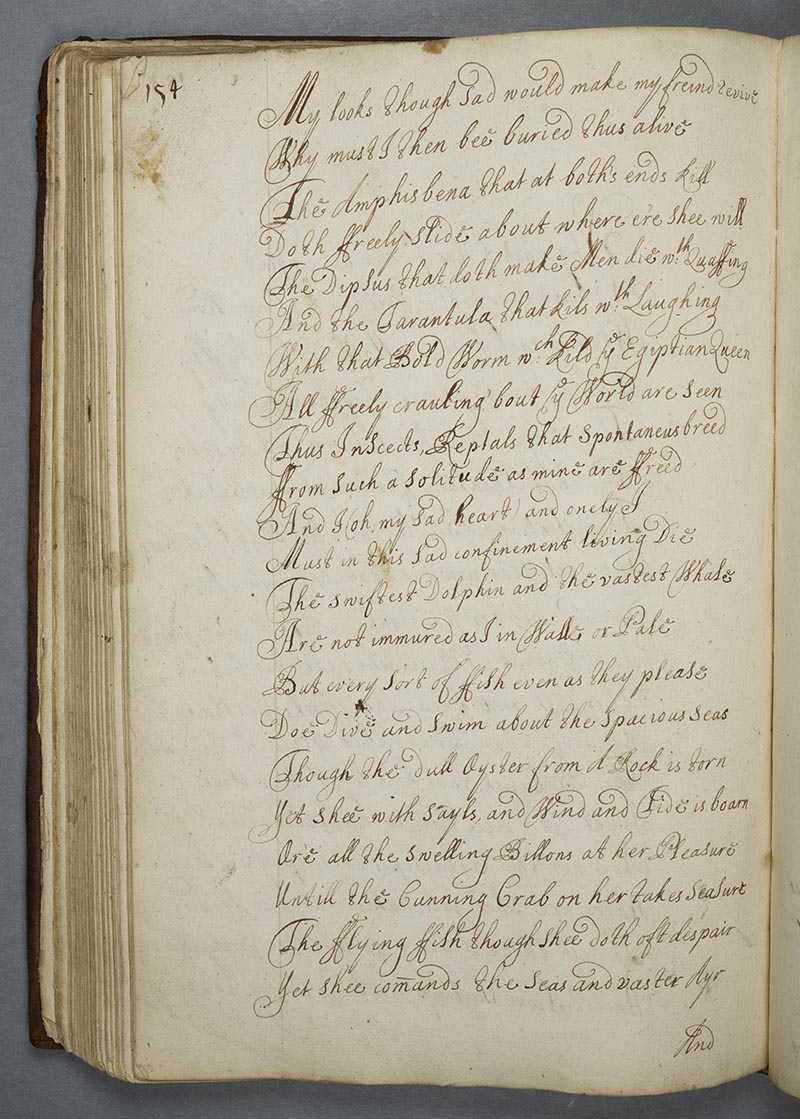 154
My looks though Sad would make my freind revive
Why must I then bee buried thus alive
The Amphisbena that at boths ends kill
Doth ffreely slide about where e're shee will
The Dipsus that doth make Men die wth Quaffing
And the Tarantula that kils wth Laughing
With that Bold Worm wch Kild ye Egiptian Queen
All ffreely crauling bout ye World are seen
Thus Inscects, Reptals that spontaneus breed
ffrom such a solitude as mine are ffreed
And I (oh my sad heart) and onely I
Must in this sad confinement living Die
The swiftest Dolphin and the vastest Whale
Are not immured as I in Walle or Pale
But every sort of ffish even as they please
Doe Dive and swim about the spacious seas
Though the dull Oyster from A Rock is torn
Yet shee with sayls, and Wind and Tide is boarn
Ore all the swelling Billons at her Pleasure
Untill the Cunning Crab on her takes seasure
The fflying ffish though shee doth oft despair
Yet shee com̄ands the seas and vaster Ayr
And